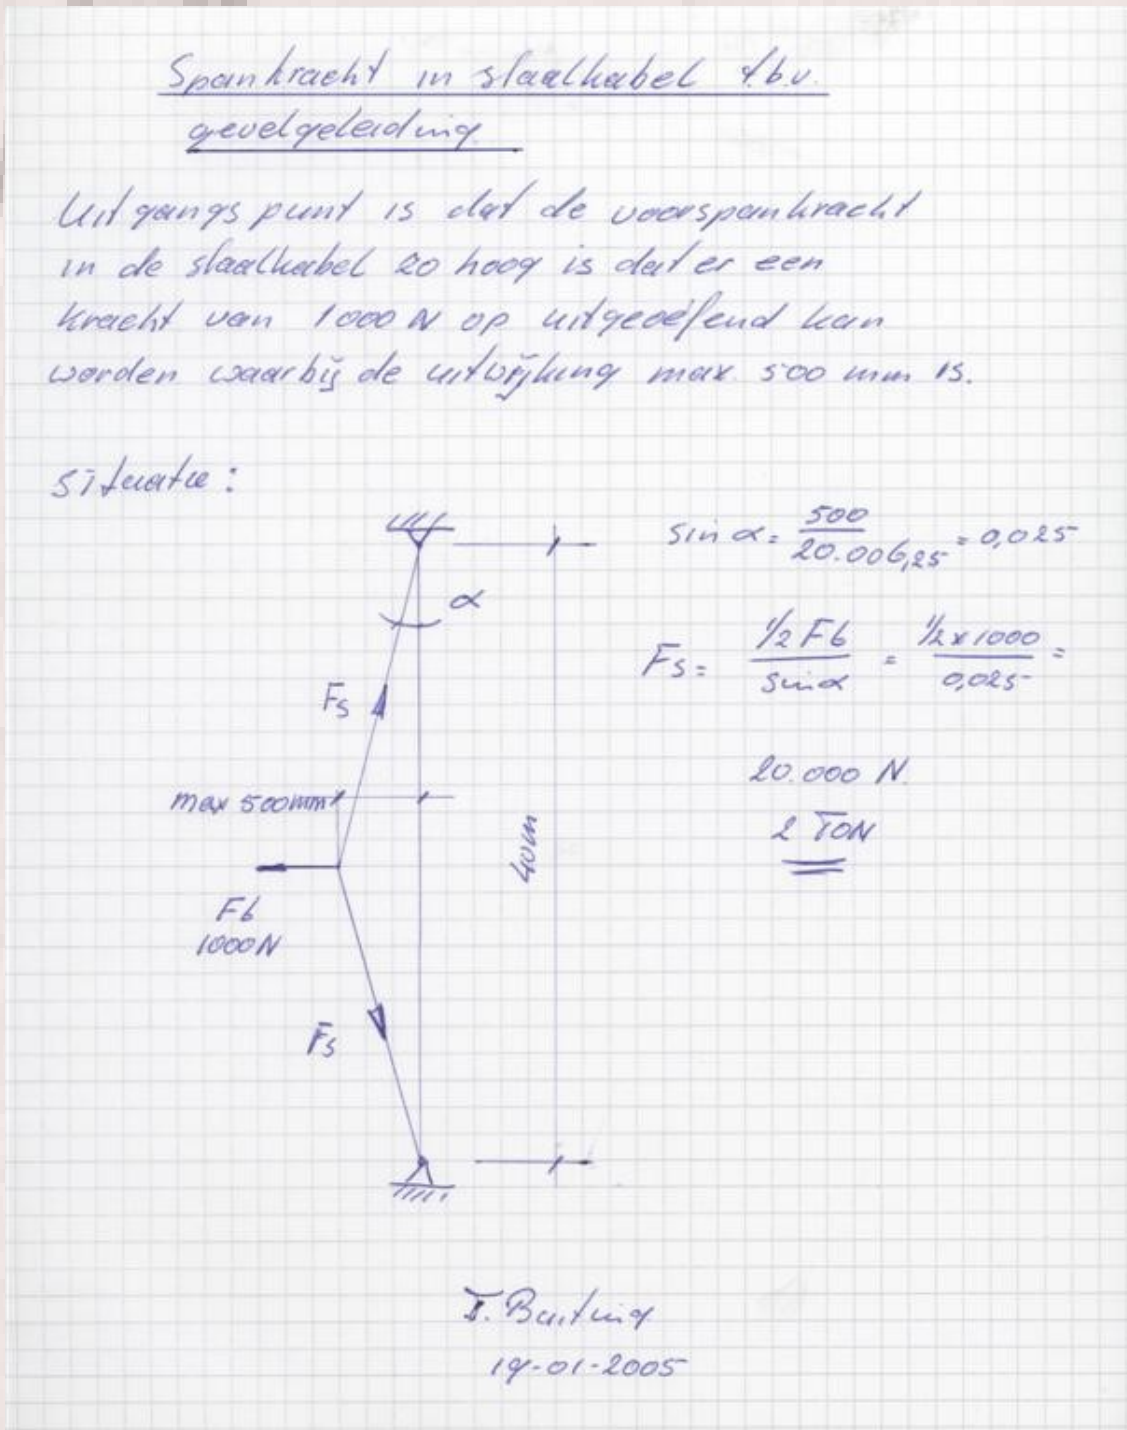 Spankracht in staalkabel t.b.v.
gevelgeleiding
Uitgangspunt is dat de voorspankracht
in de staalkabel zo hoog is dat er een
kracht van 1000 N op uitgeoefend kan
worden waarbij de uitwijking max. 500 mm is.
situatie:
sin α = 500 / 20.006,25 = 0,025
α
Fs = 1/2 Fb / sin α = 1/2 x 1000 / 0,025 =
Fs
20.000 N.
max 500mm
2 TON
40m
Fb
1000N
Fs
19-01-2005